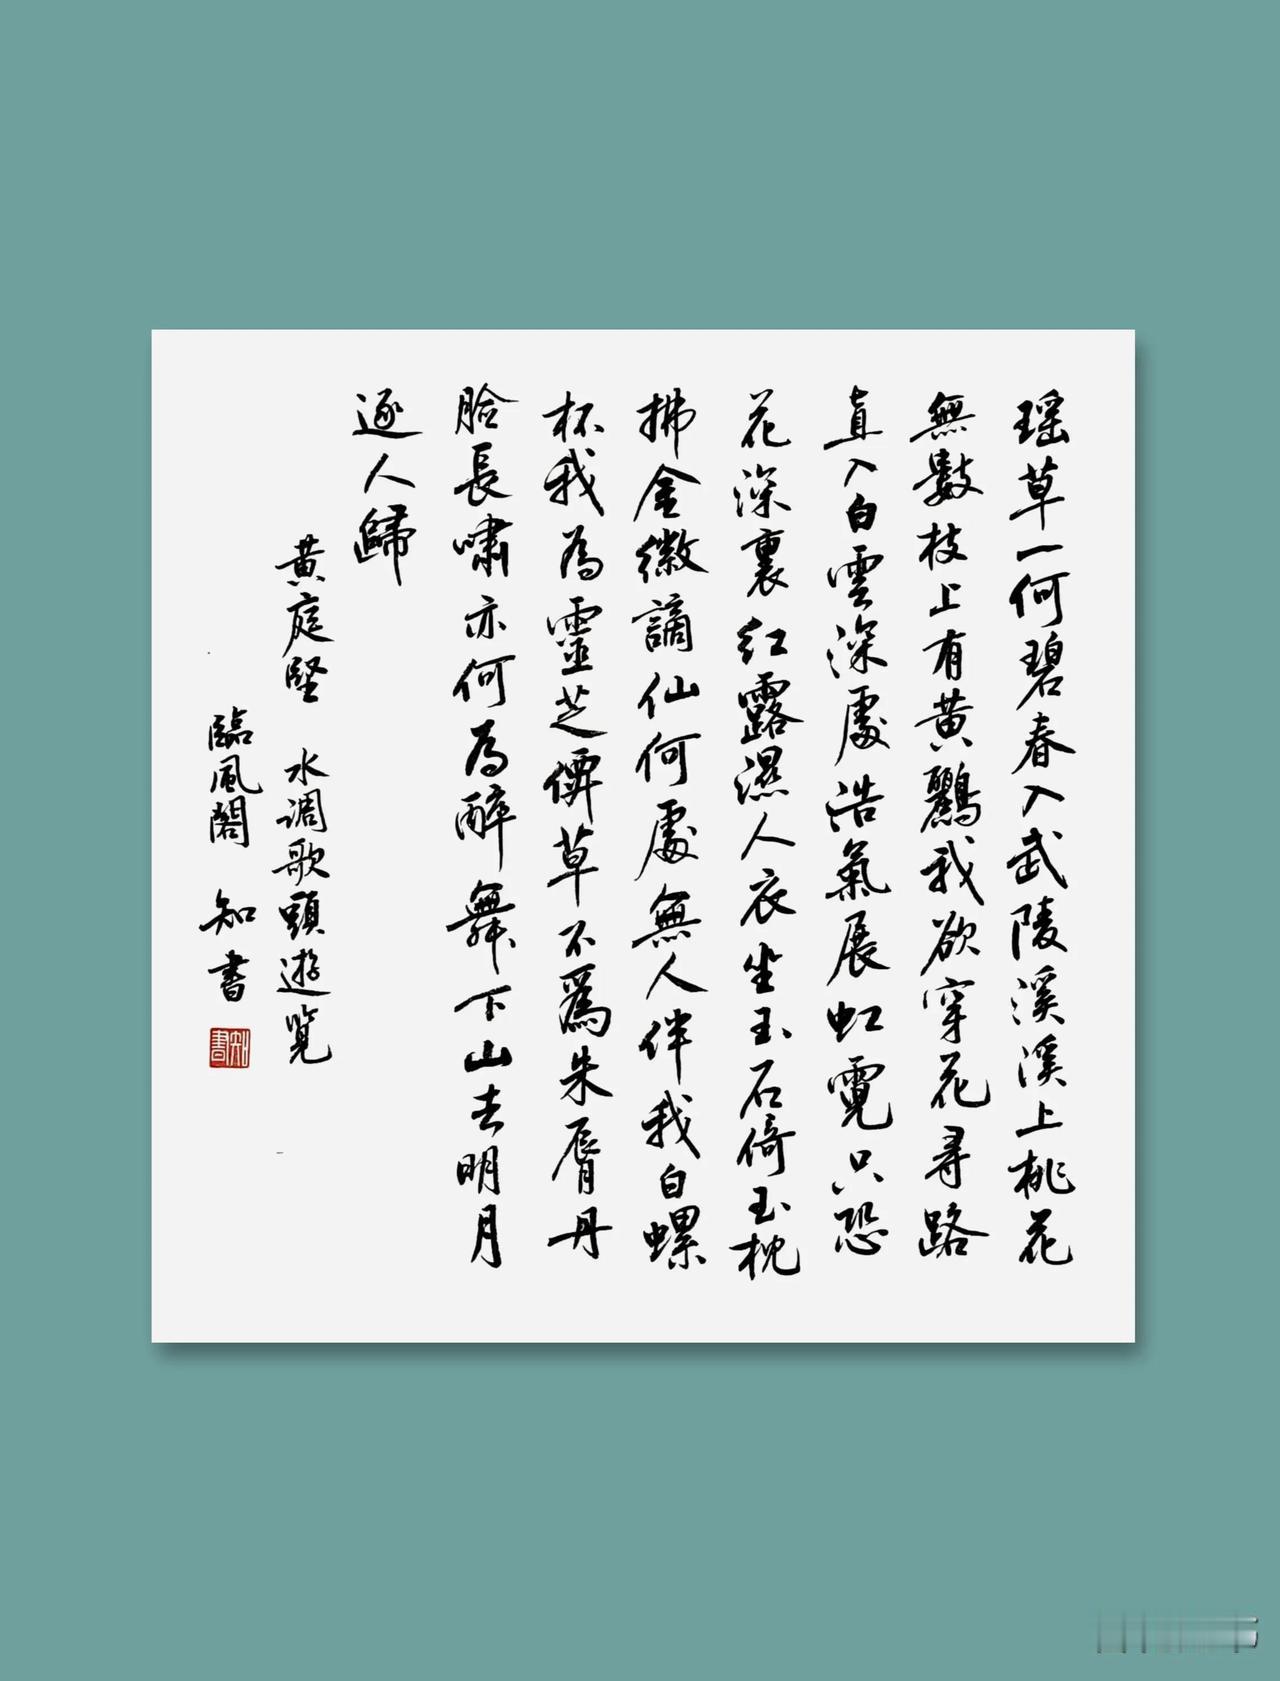 瑶草一何碧春入武陵溪溪上桃花
無數枝上有黄鸝我欲穿花尋路
直入白雲深處浩氣展虹霓只恐
花深裏紅露濕人衣坐玉石倚玉枕
拂金徽謫仙何處無人伴我白螺
杯我為靈芝僊草不爲朱脣丹
臉長嘯亦何為醉舞下山去明月
逐人歸
黄庭堅 水調歌頭遊覽
臨風閣 知書
知書